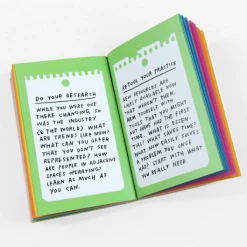 DO YOUR RESEARCH
WHILE YOU WERE OUT
THERE CHANGING, SO
WAS THE INDUSTRY
(& THE WORLD). WHAT
ARE TRENDS LIKE NOW?
WHAT CAN YOU OFFER
THAT YOU DON'T SEE
REPRESENTED? HOW
ARE PEOPLE IN ADJACENT
SPACES OPERATING?
LEARN AS MUCH AS
YOU CAN.
RETOOL YOUR PRACTICE
NEW RESOURCES ARE
LIKELY AVAILABLE NOW
THAT WEREN'T THEN.
ARM YOURSELF WITH
TOOLS THAT YOU MIGHT
NOT HAVE HAD THE FIRST
TIME. WHAT IS ESSEN-
TIAL? WHAT SAVES TIME?
WHAT EASILY SOLVES
A PROBLEM YOU ONCE
HAD? START WITH WHAT
YOU REALLY NEED.